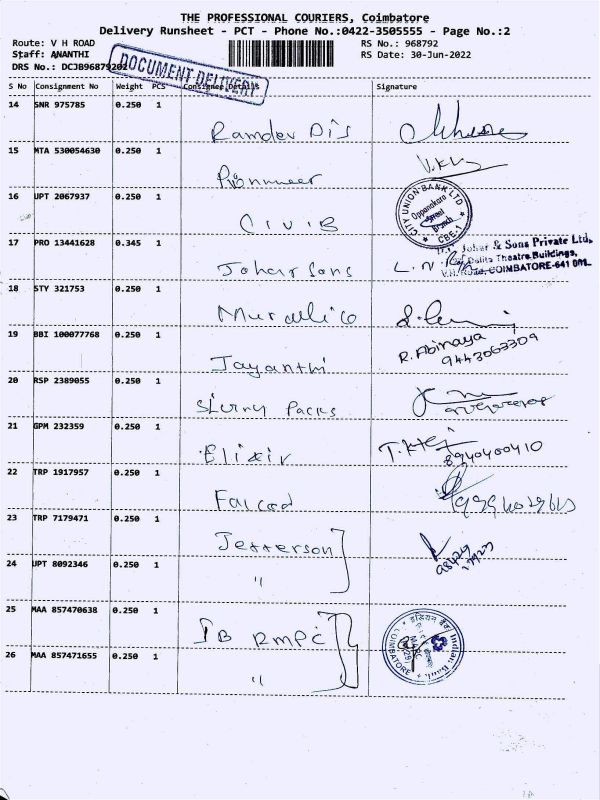 THE PROFESSIONAL COURIERS, Coimbatore
Delivery Runsheet - PCT - Phone No.:0422-3505555 - Page No.:2
Route: V H ROAD RS No.: 968792
Staff: ANANTHI RS Date: 30-Jun-2022
DRS No.: DCJB96879202
DOCUMENT DELIVERY
S No Consignment No Weight PCS Consignee Details Signature
14 SNR 975785 0.250 1 Ramdev Dis
15 MTA 530054630 0.250 1 Pionmeer V.K
16 UPT 2067937 0.250 1 CIUIB
CITY UNION BANK LTD Oppanakara Street Branch CBE-1
17 PRO 13441628 0.345 1 Johar Sons L.N.
Johar & Sons Private Ltd.
Lalita Theatre Buildings,
V.H. Road, COIMBATORE-641 001.
18 STY 321753 0.250 1 Murallico
19 BBI 100077768 0.250 1 Jayanthi R. Abinaya
9443063309
20 RSP 2389055 0.250 1 Slurry Packs
21 GPM 232359 0.250 1 Elixir
8940400410
22 TRP 1917957 0.250 1 Falcod
23 TRP 7179471 0.250 1 Jefferson
24 UPT 8092346 0.250 1 "
25 MAA 857470638 0.250 1 IB RMPC
इंडियन बैंक Indian Bank COIMBATORE
26 MAA 857471655 0.250 1 "